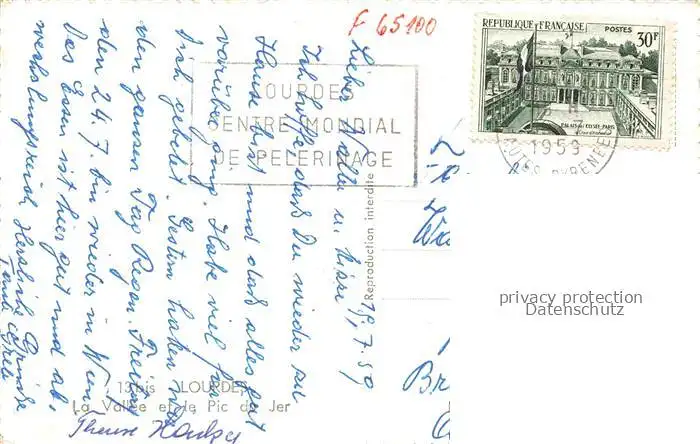 F 65100
RÉPUBLIQUE FRANÇAISE
POSTES
30F
PALAIS DE L'ELYSÉE. PARIS
LOURDES
CENTRE MONDIAL
DE PÈLERINAGE
1959
HAUTES PYRENEES
19.7.59
Lieber Walter u.
Ich hoffe, daß Du wieder zu
Hause bist und daß alles gut
vorüber ging. Habe viel für
Dich gebetet. Gestern hatten wir
den ganzen Tag Regen. Freitag
den 24.7. bin wieder in Wien
Das Essen ist hier gut und ab-
wechslungsreich. Herzliche Grüße
Tante
Reproduction interdite
13 bis LOURDES
La Vallée et le Pic du Jer
Wa
Br
privacy protection
Datenschutz